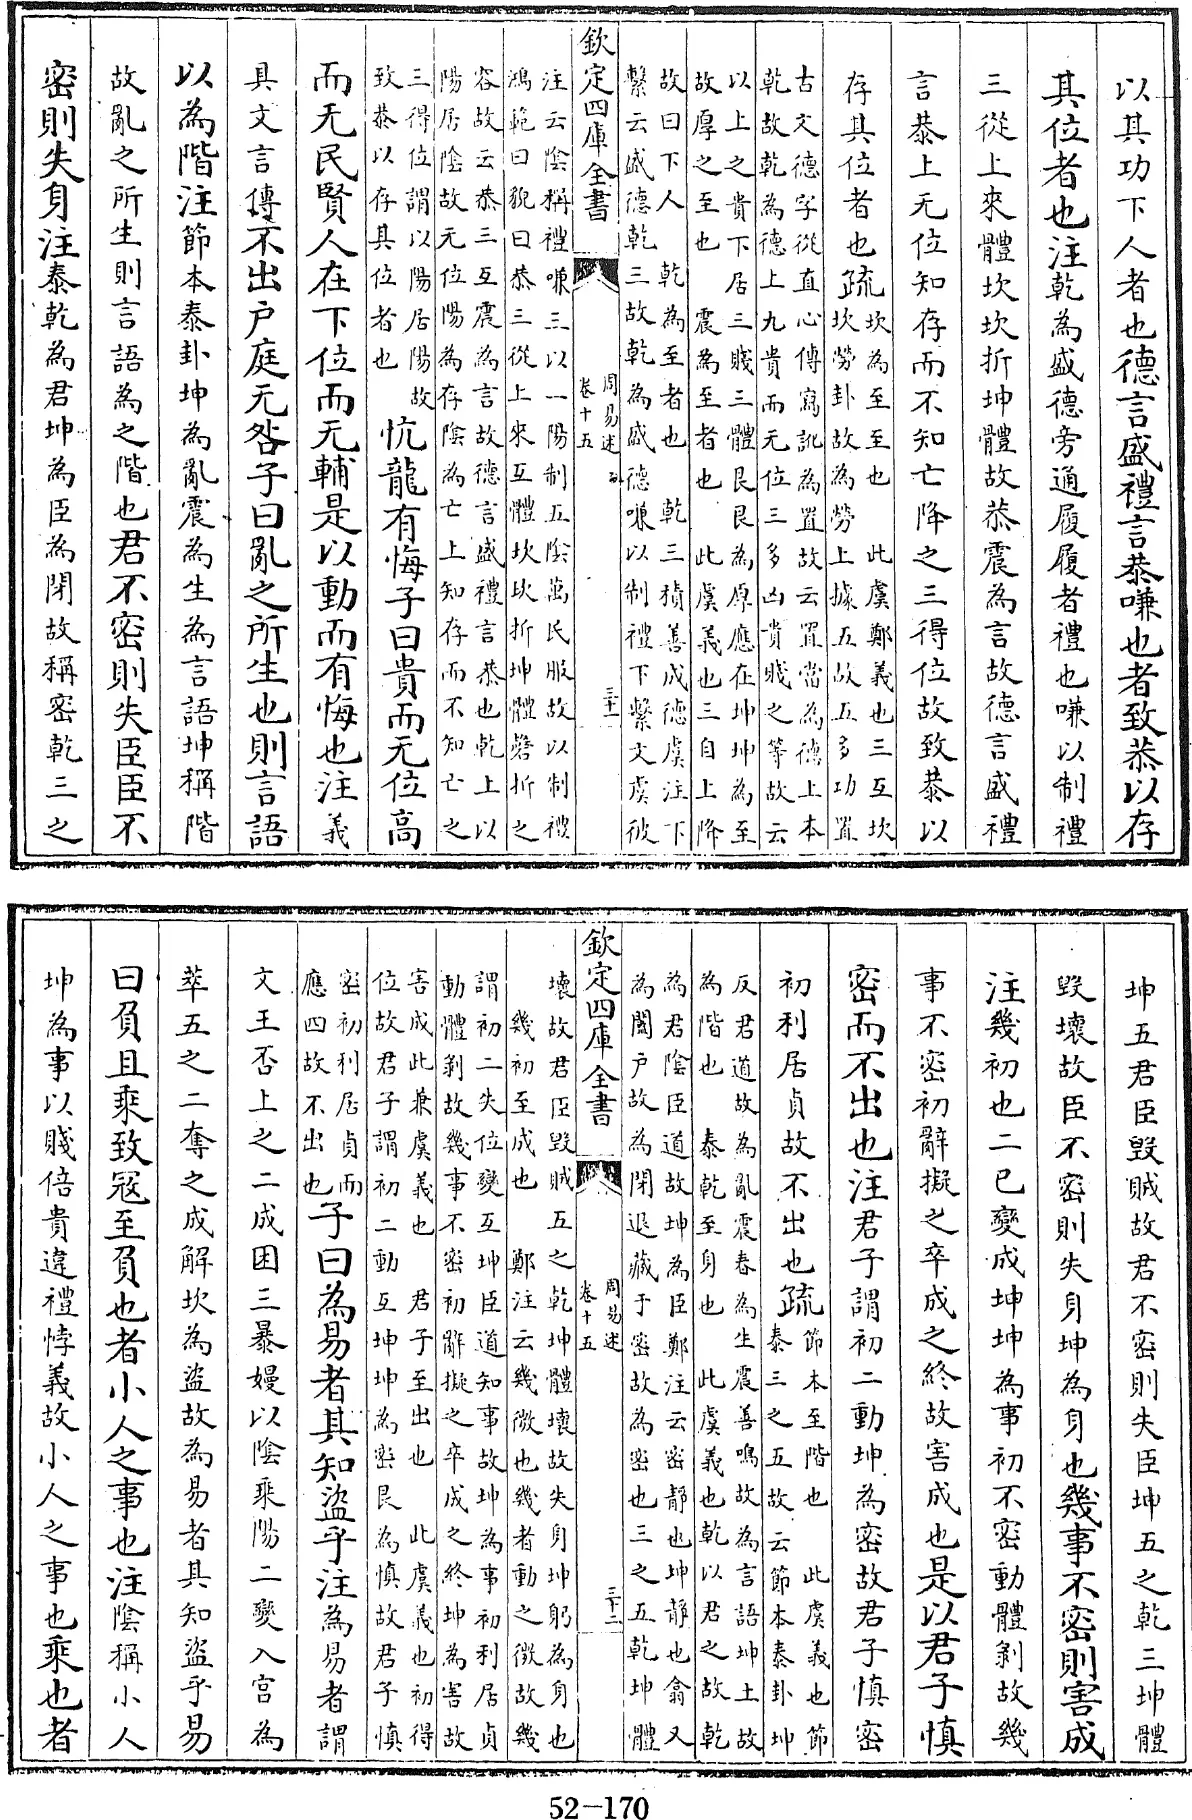 以其功下人者也德言盛禮言恭嗛也者致恭以存
其位者也注乾為盛德旁通履履者禮也嗛以制禮
三從上來體坎坎折坤體故恭震為言故德言盛禮
言恭上无位知存而不知亡降之三得位故致恭以
存其位者也疏坎為至至也　此虞鄭義也三互坎
坎勞卦故為勞上據五故五多功置
古文德字從直心傳寫訛為置故云置當為德上本
乾故乾為德上九貴而无位三多凶貴賤之等故云
以上之貴下居三賤三體艮艮為厚應在坤坤為至
故厚之至也　震為至者也　此虞義也三自上降
故曰下人　乾為至者也　乾三積善成德虞注下
繫云盛德乾三故乾為盛德嗛以制禮下繫文虞彼
欽定四庫全書　周易述　卷十五　三十一
注云陰稱禮嗛三以一陽制五陰萬民服故以制禮
鴻範曰貌曰恭三從上來互體坎坎折坤體磬折之
容故云恭三互震為言故德言盛禮言恭也乾上以
陽居陰故无位陽為存陰為亡上知存而不知亡之
三得位謂以陽居陽故
致恭以存其位者也　亢龍有悔子曰貴而无位高
而无民賢人在下位而无輔是以動而有悔也注義
具文言傳不出户庭无咎子曰亂之所生也則言語
以為階注節本泰卦坤為亂震為生為言語坤稱階
故亂之所生則言語為之階也君不密則失臣臣不
密則失身注泰乾為君坤為臣為閉故稱密乾三之
坤五君臣毀賊故君不密則失臣坤五之乾三坤體
毀壞故臣不密則失身坤為身也幾事不密則害成
注幾初也二已變成坤坤為事初不密動體剝故幾
事不密初辭擬之卒成之終故害成也是以君子慎
密而不出也注君子謂初二動坤為密故君子慎密
初利居貞故不出也疏節本至階也　此虞義也節
泰三之五故云節本泰卦坤
反君道故為亂震春為生震善鳴故為言語坤土故
為階也　泰乾至身也　此虞義也乾以君之故乾
為君陰臣道故坤為臣鄭注云密靜也坤靜也翕又
為闔户故為閉退藏于密故為密也三之五乾坤體
欽定四庫全書　周易述　卷十五　三十二
壞故君臣毀賊五之乾坤體壞故失身坤躬為身也
幾初至成也　鄭注云幾微也幾者動之微故幾
謂初二失位變互坤臣道知事故坤為事初利居貞
動體剝故幾事不密初辭擬之卒成之終坤為害故
害成此兼虞義也　君子至出也　此虞義也初得
位故君子謂初二動互坤坤為密艮為慎故君子慎
密初利居貞而
應四故不出也　子曰為易者其知盜乎注為易者謂
文王否上之二成困三暴嫚以陰乘陽二變入宫為
萃五之二奪之成解坎為盜故為易者其知盜乎易
曰負且乘致寇至負也者小人之事也注陰稱小人
坤為事以賤倍貴違禮悖義故小人之事也乘也者
52—170